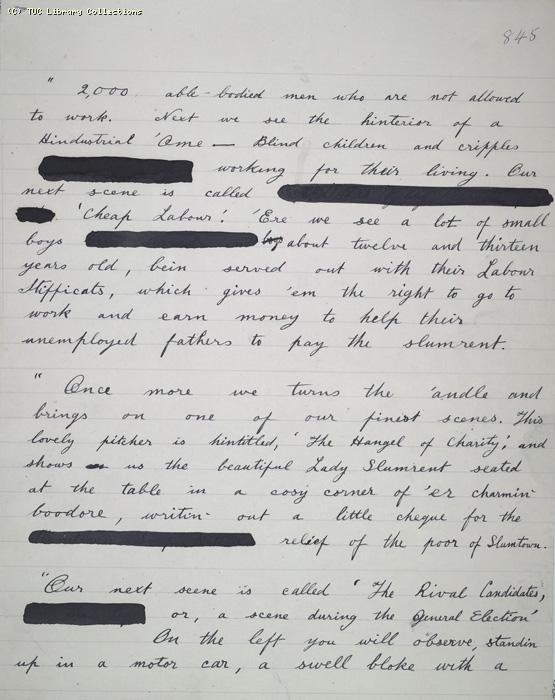 (C) TUC Library Collections
845
" 2,000 able-bodied men who are not allowed
to work. Next we see the hinterior of a
Hindustrial 'Ome — Blind children and cripples
working for their living. Our
next scene is called
'Cheap Labour'. 'Ere we see a lot of small
boys boys about twelve and thirteen
years old, bein served out with their Labour
Stifficats, which gives 'em the right to go to
work and earn money to help their
unemployed fathers to pay the slumrent.
" Once more we turns the 'andle and
brings on one of our finest scenes. This
lovely pitcher is hintitled, 'The Hangel of Charity', and
shows us the beautiful Lady Slumrent seated
at the table in a cosy corner of 'er charmin'
boodore, writin' out a little cheque for the
relief of the poor of Slumtown.
"Our next scene is called 'The Rival Candidates,
or, a scene during the General Election'
On the left you will observe, standin
up in a motor car, a swell bloke with a